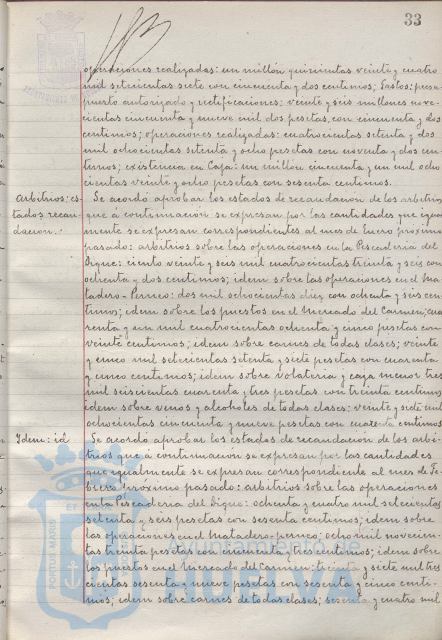 33
operaciones realizadas: un millón quinientas veinte y cuatro
mil setecientas siete con cincuenta y dos centimos; Gastos: presu-
puesto autorizado y rectificaciones: veinte y seis millones nove-
cientas cincuenta y nueve mil dos pesetas, con cincuenta y dos
centimos; operaciones realizadas: cuatrocientas setenta y dos
mil ochocientas setenta y ocho pesetas con noventa y dos cen-
timos; existencia en Caja: un millon cincuenta y un mil ocho
cientas veinte y ocho pesetas con sesenta centimos.
Arbitrios: es-
tados recau-
dacion.
Se acordó aprobar los estados de recaudacion de los arbitrios
que á continuacion se expresan por las cantidades que igual-
mente se expresan correspondientes al mes de Enero próximo
pasado: arbitrios sobre las operaciones en la Pescaderia del
Dique: ciento veinte y seis mil cuatrocientas treinta y seis con
ochenta y dos centimos; idem sobre las operaciones en el Ma-
tadero-Perneo: dos mil ochocientas diez con ochenta y seis cen-
timos; idem sobre los puestos en el Mercado del Carmen; cua-
renta y un mil cuatrocientas ochenta y cinco pesetas con
veinte centimos; idem sobre carnes de todas clases; veinte
y cinco mil setecientas setenta y siete pesetas con cuarenta
y cinco centimos; idem sobre volateria y caza menor tres
mil seiscientas cuarenta y tres pesetas con treinta centimos
idem sobre vinos y alcoholes de todas clases: veinte y siete mil
ochocientas cincuenta y nueve pesetas con cuarenta centimos
Idem: id
Se acordó aprobar los estados de recaudacion de los arbi-
trios que á continuacion se expresan por las cantidades
que igualmente se expresan correspondiente al mes de Fe-
brero próximo pasado: arbitrios sobre las operaciones
en la Pescaderia del Dique: ochenta y cuatro mil setecientas
setenta y seis pesetas con sesenta centimos; idem sobre
las operaciones en el Matadero-perneo: ocho mil novecien-
tas treinta pesetas con cincuenta y tres centimos; idem sobre
los puestos en el Mercado del Carmen: treinta y siete mil tres
cientas sesenta y nueve pesetas con sesenta y cinco centi-
mos; idem sobre carnes de todas clases; sesenta y cuatro mil
Ayuntamiento de
HUELVA
PORTUS MARIS
ET